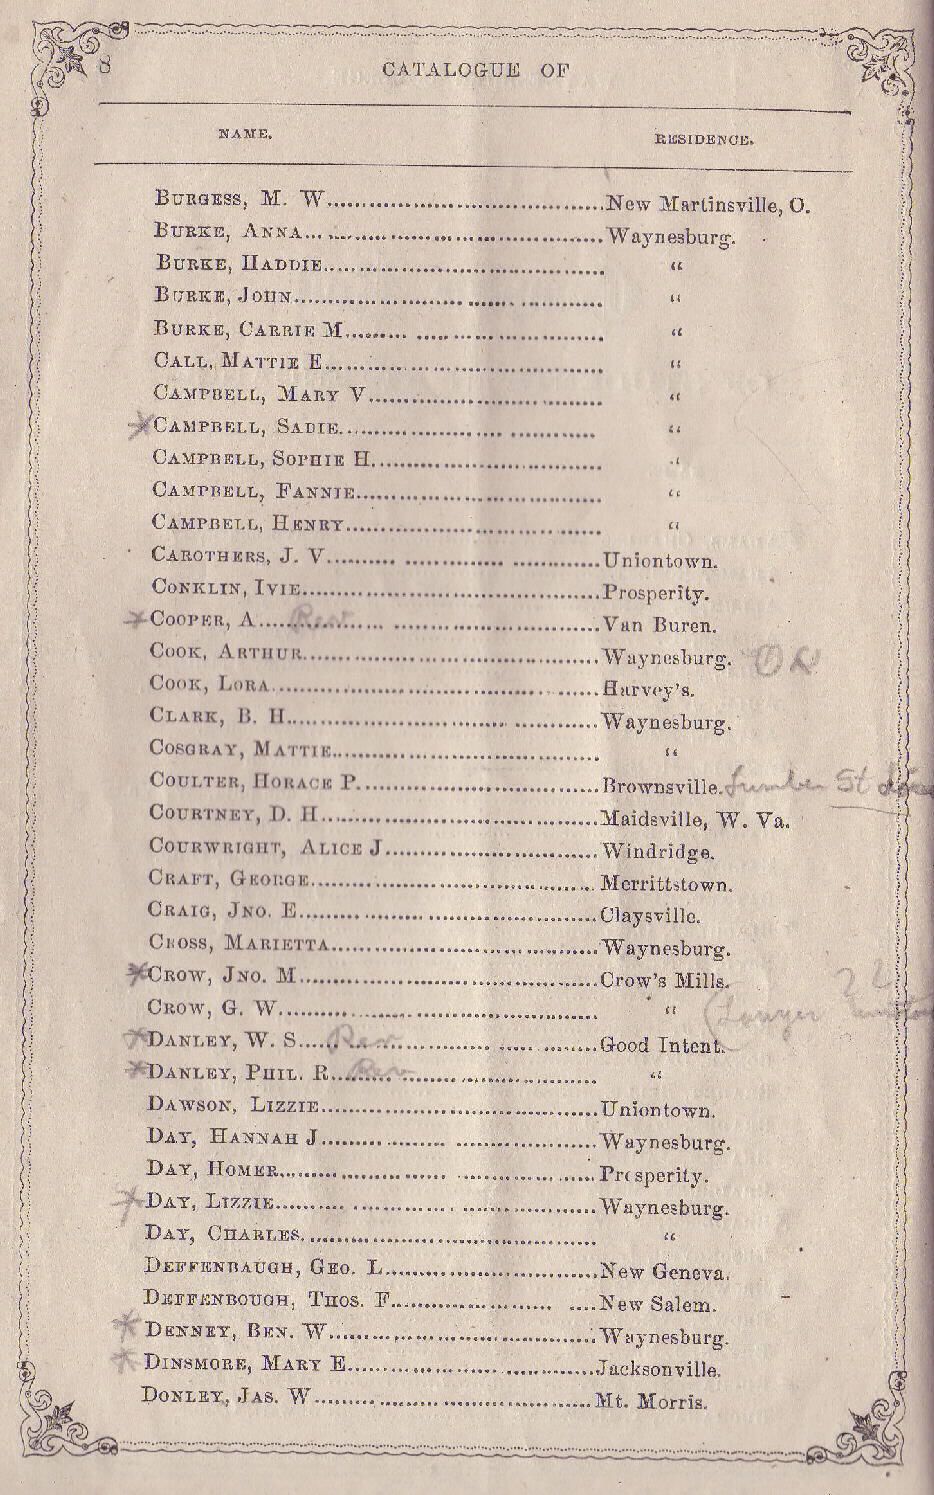 8
CATALOGUE OF
NAME. RESIDENCE.
BURGESS, M. W. New Martinsville, O.
BURKE, ANNA Waynesburg.
BURKE, HADDIE "
BURKE, JOHN "
BURKE, CARRIE M "
CALL, MATTIE E "
CAMPBELL, MARY V "
* CAMPBELL, SADIE "
CAMPBELL, SOPHIE H. "
CAMPBELL, FANNIE "
CAMPBELL, HENRY "
CAROTHERS, J. V. Uniontown.
CONKLIN, IVIE Prosperity.
* COOPER, A Rev Van Buren.
COOK, ARTHUR Waynesburg. OK
COOK, LORA Harvey's.
CLARK, B. H. Waynesburg.
COSGRAY, MATTIE "
COULTER, HORACE P. Brownsville. Lumber St
COURTNEY, D. H. Maidsville, W. Va.
COURWRIGHT, ALICE J Windridge.
CRAFT, GEORGE Merrittstown.
CRAIG, JNO. E. Claysville.
CROSS, MARIETTA Waynesburg.
* CROW, JNO. M Crow's Mills.
CROW, G. W. " (Lawyer
* DANLEY, W. S. Rev Good Intent.
* DANLEY, PHIL. R. Rev "
DAWSON, LIZZIE Uniontown.
DAY, HANNAH J. Waynesburg.
DAY, HOMER Prosperity.
* DAY, LIZZIE Waynesburg.
DAY, CHARLES. "
DEFFENBAUGH, GEO. L. New Geneva.
DEFFENBOUGH, THOS. F. New Salem.
* DENNEY, BEN. W. Waynesburg.
* DINSMORE, MARY E. Jacksonville.
DONLEY, JAS. W. Mt. Morris.